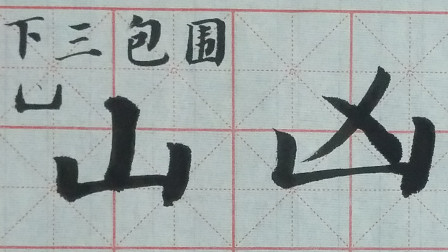 下三包围
凵
山凶